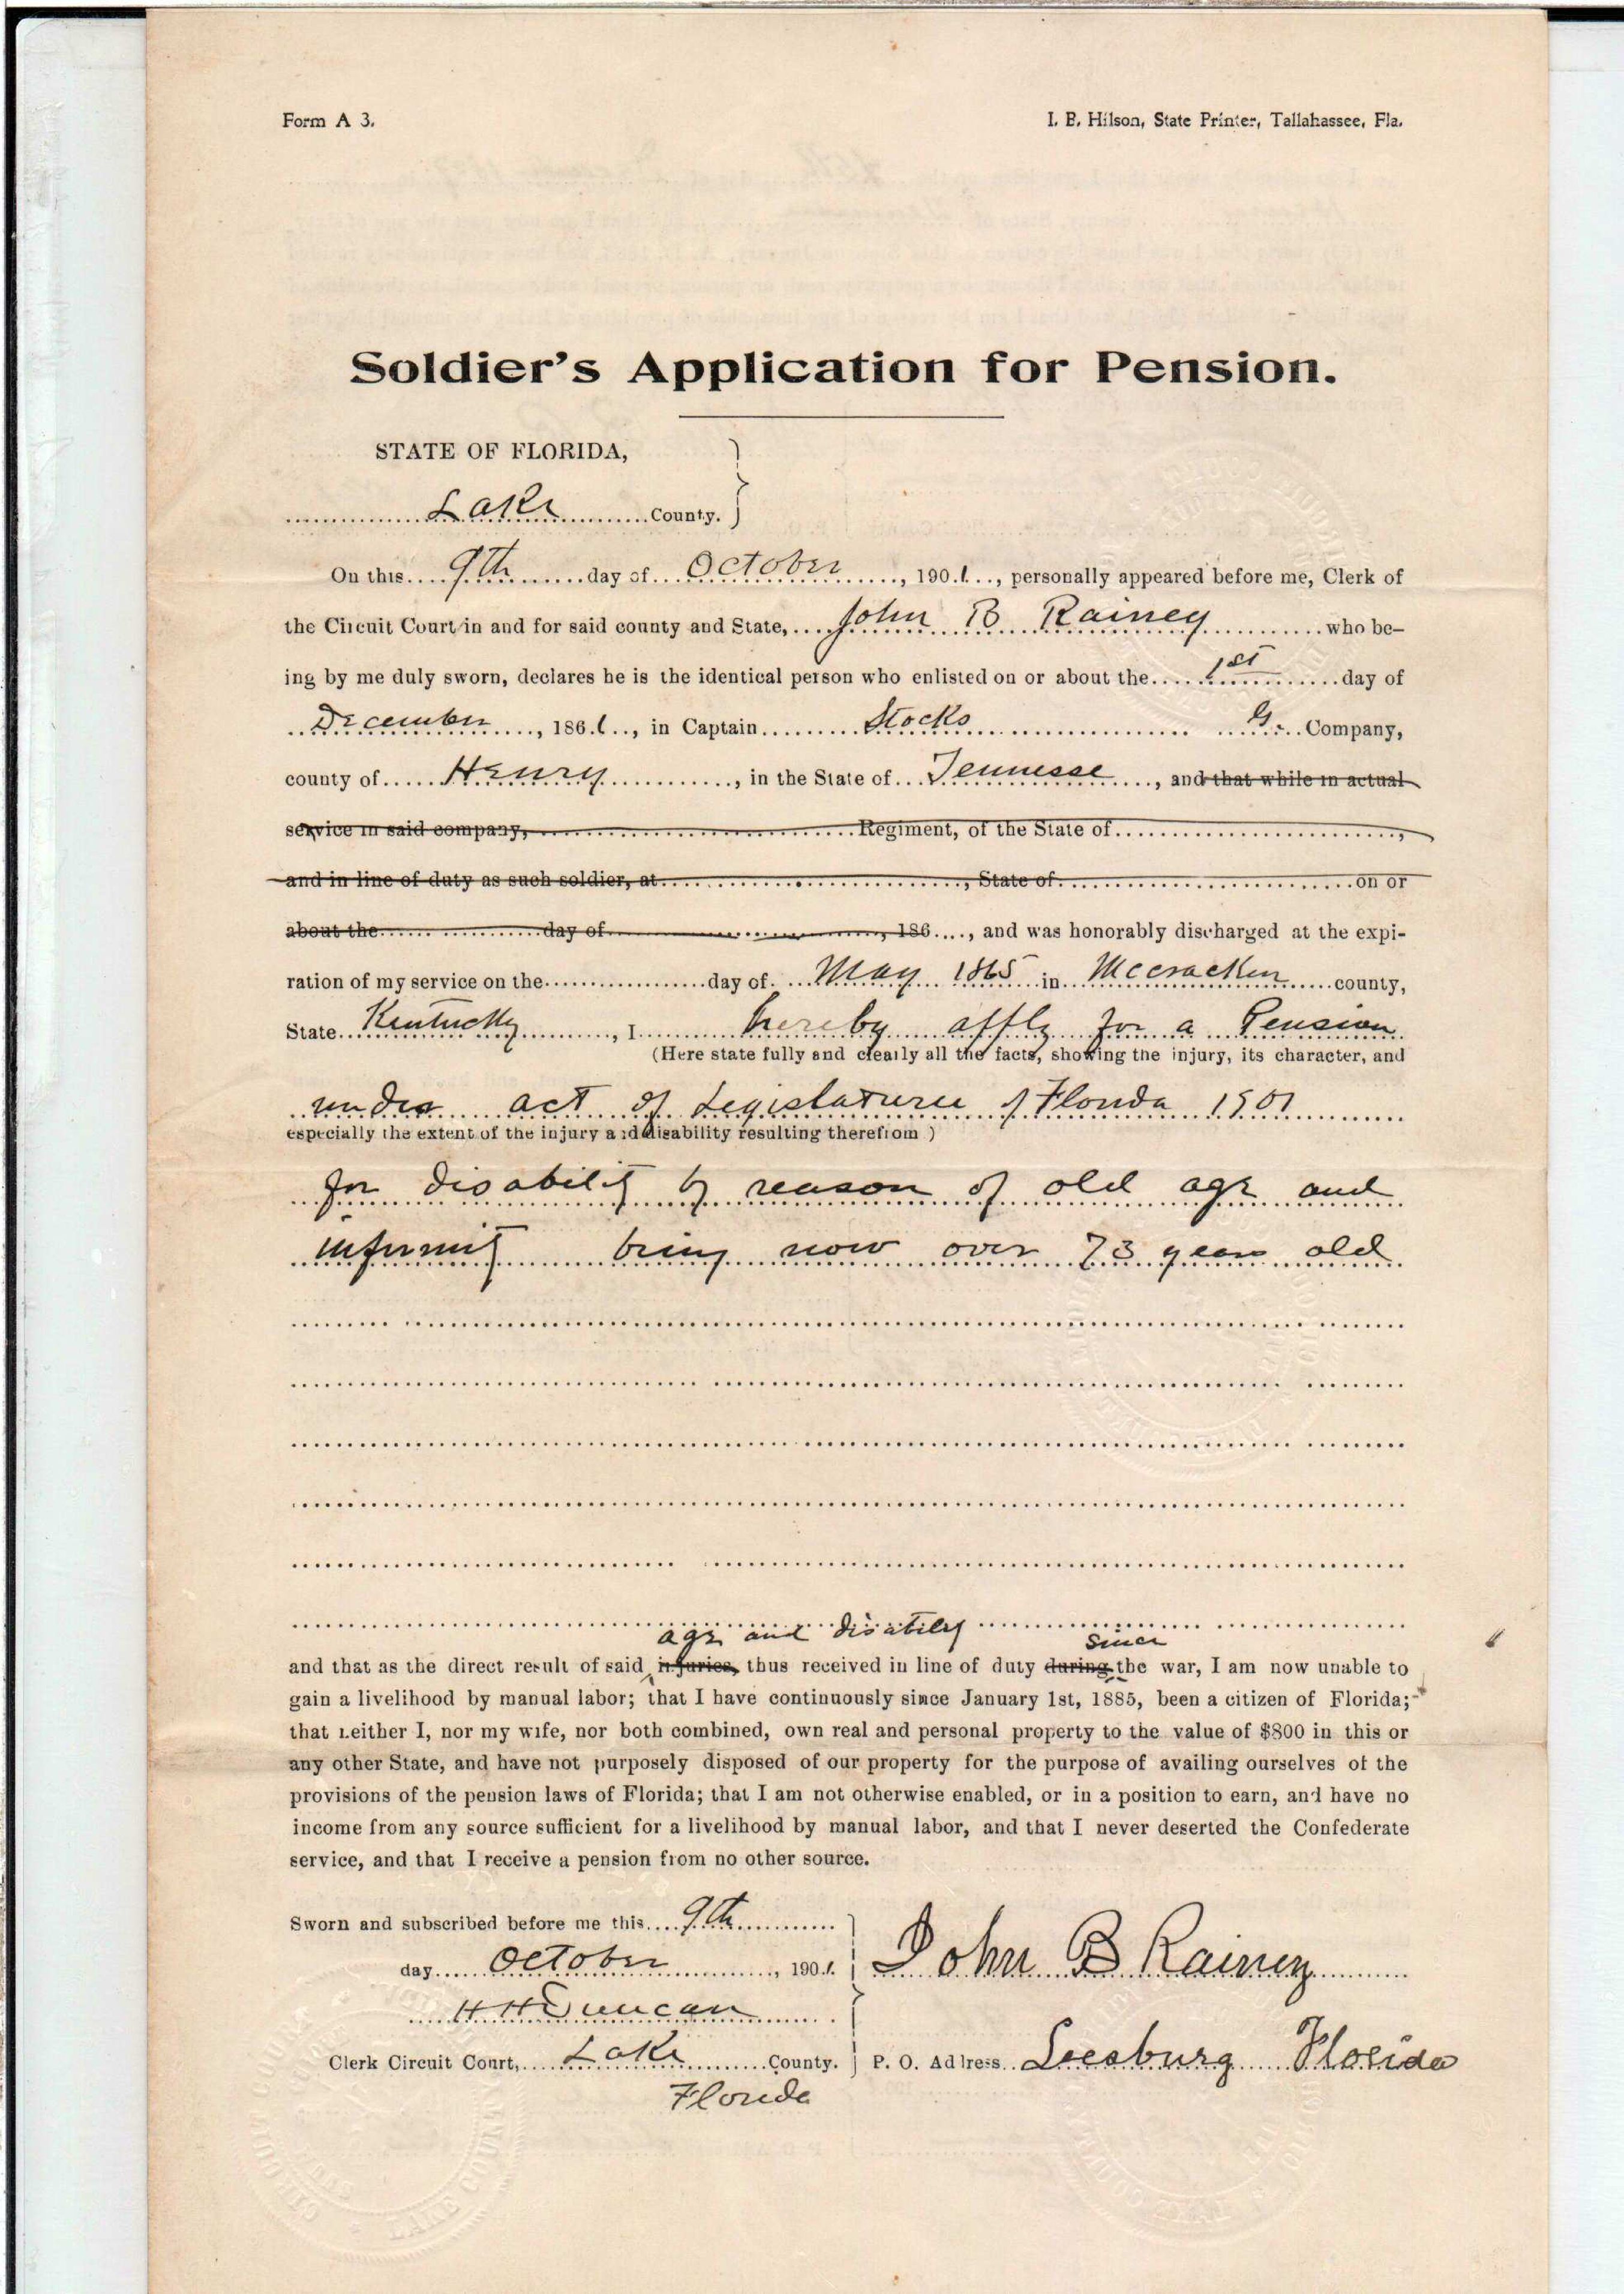 Form A 3.
I. B. Hilson, State Printer, Tallahassee, Fla.
Soldier's Application for Pension.
STATE OF FLORIDA,
Lake County.
On this 9th day of October, 1901, personally appeared before me, Clerk of
the Circuit Court in and for said county and State, John B Rainey who be-
ing by me duly sworn, declares he is the identical person who enlisted on or about the 1st day of
December, 1861, in Captain Stocks G. Company,
county of Henry, in the State of Tennesse, and that while in actual
service in said company, Regiment, of the State of,
and in line of duty as such soldier, at, State of on or
about the day of, 186, and was honorably discharged at the expi-
ration of my service on the day of May 1865 in Mccracken county,
State Kentucky, I hereby apply for a Pension
(Here state fully and clearly all the facts, showing the injury, its character, and
under act of Legislature of Florida 1901
especially the extent of the injury and disability resulting therefrom)
for disability by reason of old age and
infirmity being now over 73 years old
age and disability since
and that as the direct result of said injuries, thus received in line of duty during the war, I am now unable to
gain a livelihood by manual labor; that I have continuously since January 1st, 1885, been a citizen of Florida;
that neither I, nor my wife, nor both combined, own real and personal property to the value of $800 in this or
any other State, and have not purposely disposed of our property for the purpose of availing ourselves of the
provisions of the pension laws of Florida; that I am not otherwise enabled, or in a position to earn, and have no
income from any source sufficient for a livelihood by manual labor, and that I never deserted the Confederate
service, and that I receive a pension from no other source.
Sworn and subscribed before me this 9th
day October, 1901.
John B Rainey
H H Duncan
Clerk Circuit Court, Lake County.
P. O. Address Leesburg Florida
Florida